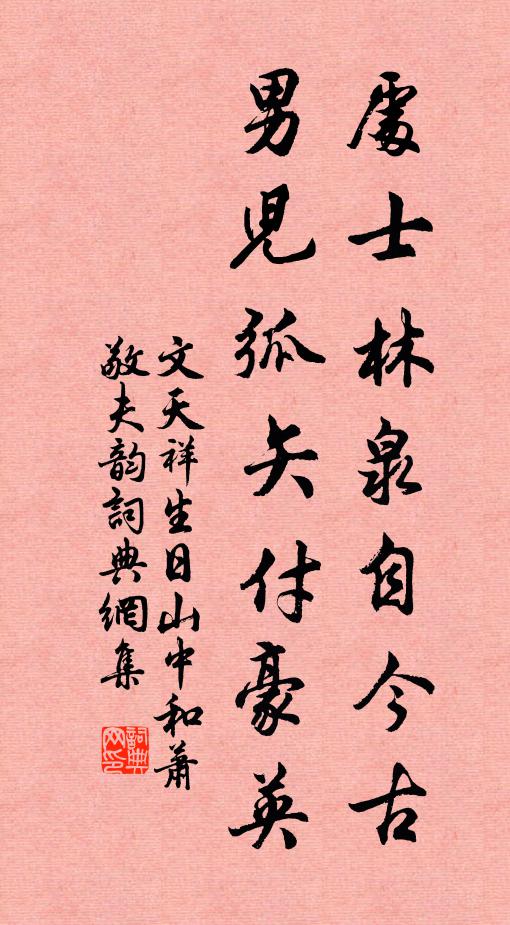 處士林泉自今古
男兒弧矢付豪英
文天祥生日山中和蕭
敬夫韵詞典網集
詞典
网印